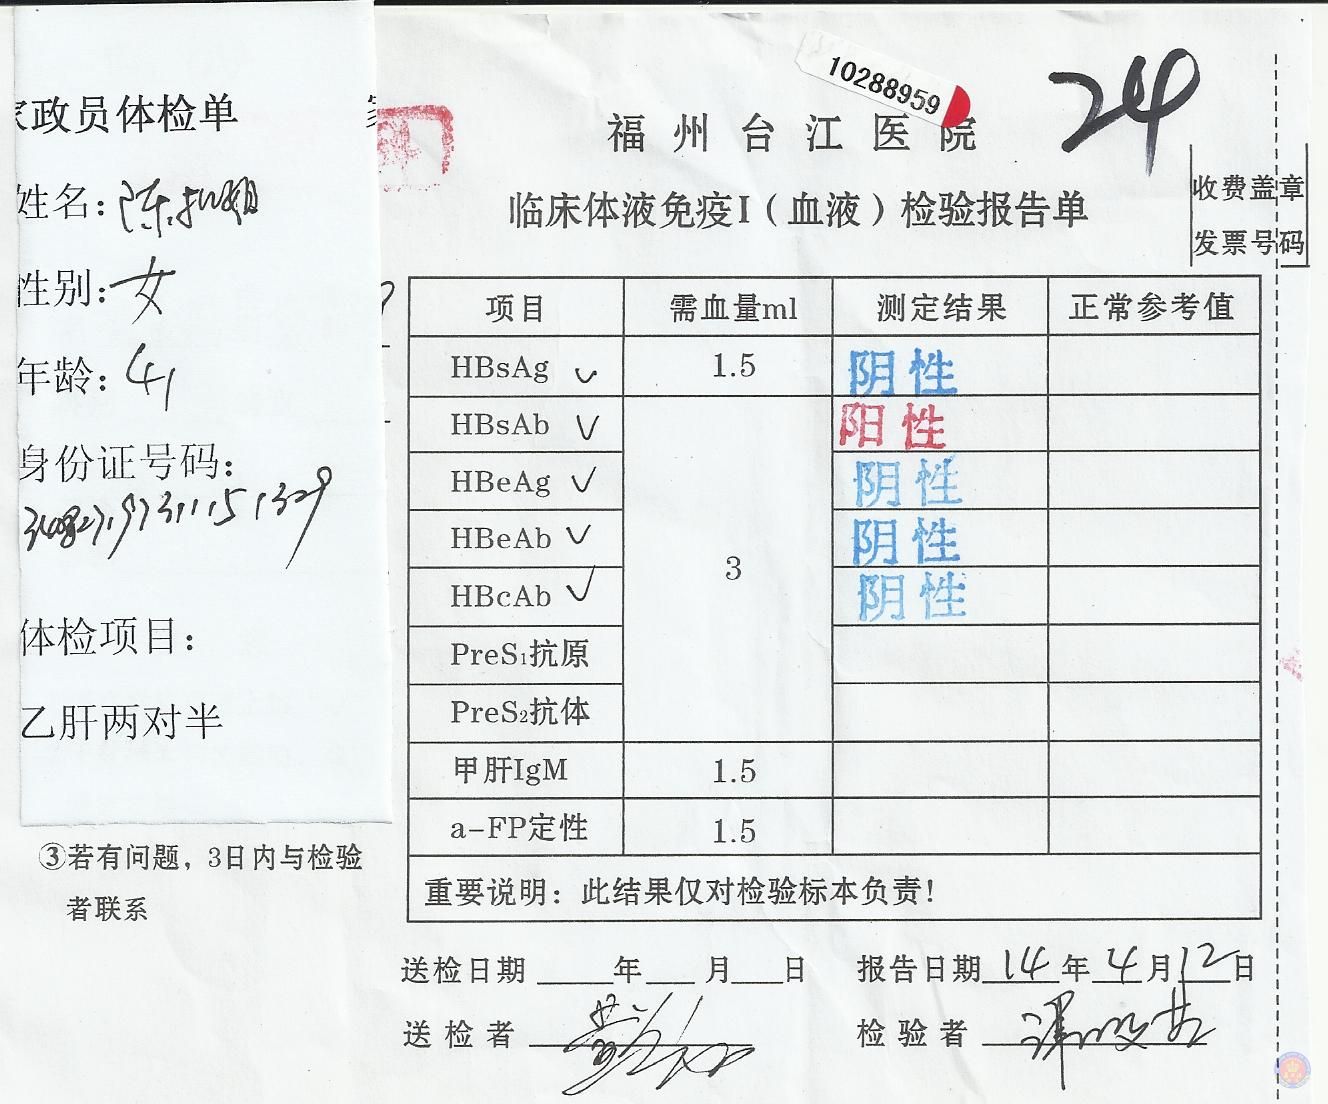 家政员体检单
姓名：陈
性别：女
年龄：41
身份证号码：
体检项目：
乙肝两对半
③若有问题，3日内与检验
者联系
10288959
24
福州台江医院
临床体液免疫I（血液）检验报告单
收费盖章
发票号码
项目 需血量ml 测定结果 正常参考值
HBsAg ✓ 1.5 阴性
HBsAb ✓ 阳性
HBeAg ✓ 阴性
HBeAb ✓ 3 阴性
HBcAb ✓ 阴性
PreS₁抗原
PreS₂抗体
甲肝IgM 1.5
a-FP定性 1.5
重要说明：此结果仅对检验标本负责！
送检日期 年 月 日 报告日期 14年4月12日
送检者 检验者